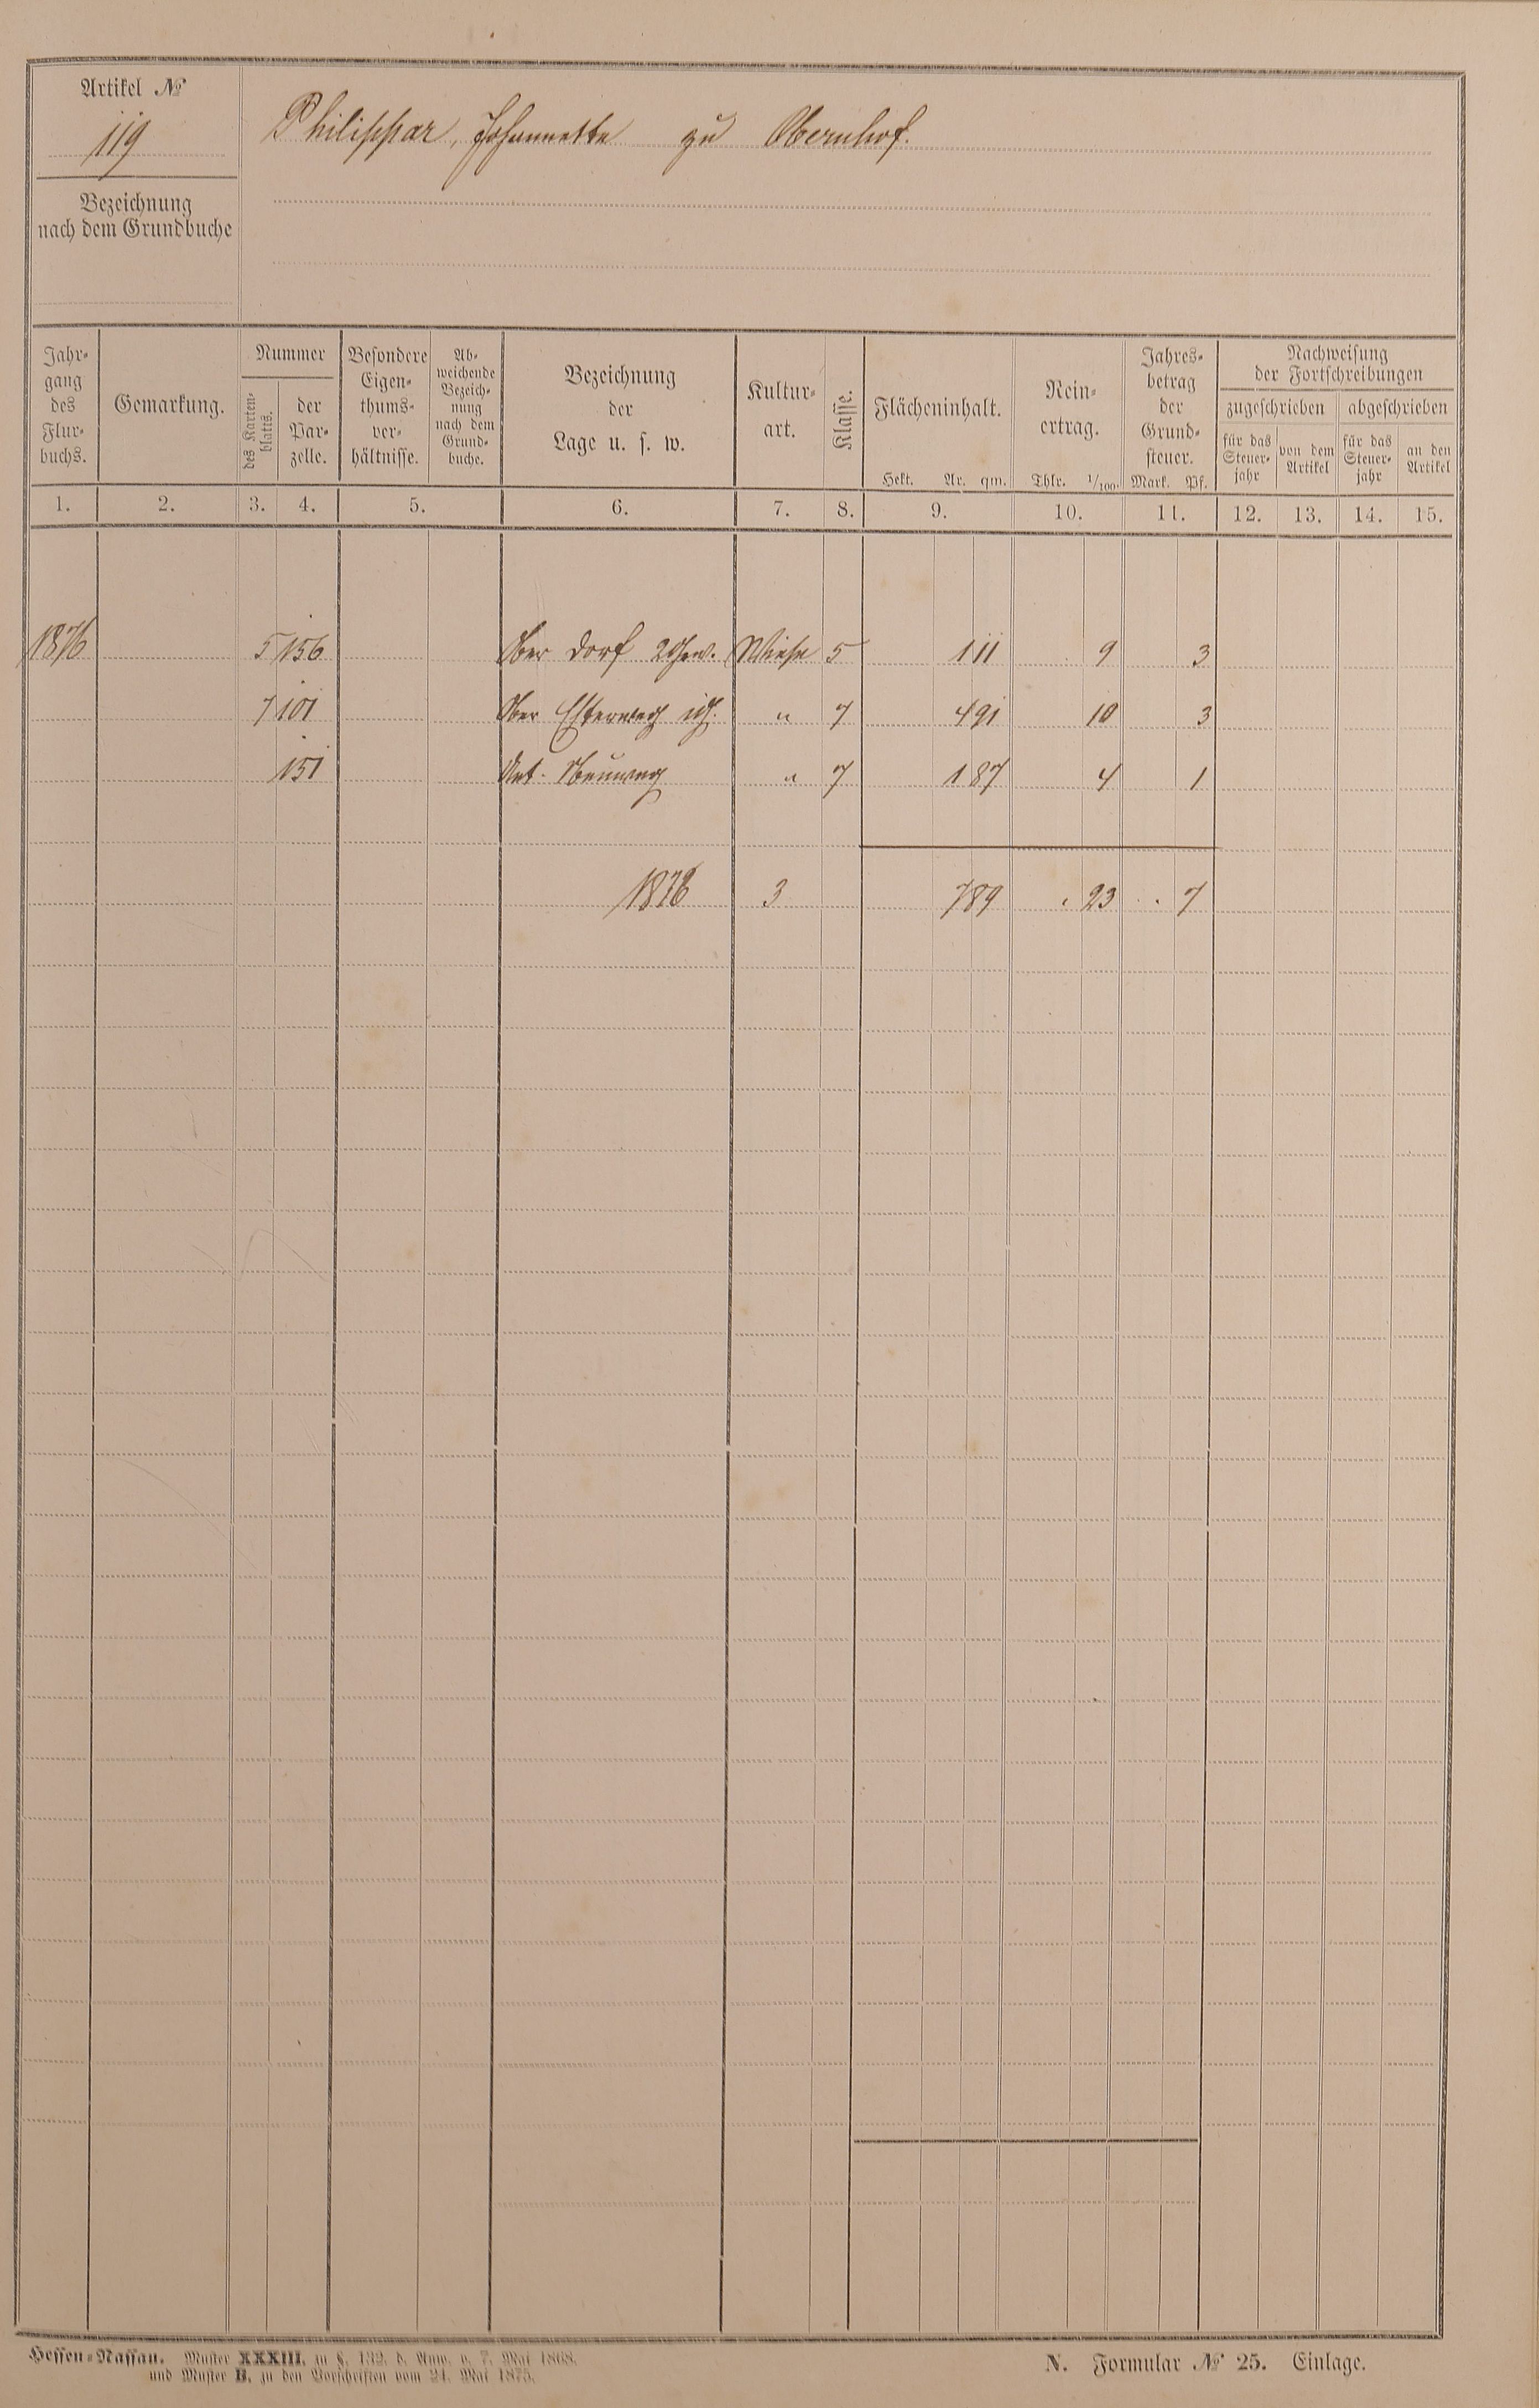 Artikel №
119
Philippar, Johannette zu Obernhof.
Bezeichnung
nach dem Grundbuche
Jahr-
gang
des
Flur-
buchs.
Gemarkung.
Nummer
des Karten-
blatts.
der
Par-
zelle.
Besondere
Eigen-
thums-
ver-
hältnisse.
Ab-
weichende
Bezeich-
nung
nach dem
Grund-
buche.
Bezeichnung
der
Lage u. s. w.
Kultur-
art.
Klasse.
Flächeninhalt.
Hekt. Ar. qm.
Rein-
ertrag.
Thlr. 1/100.
Jahres-
betrag
der
Grund-
steuer.
Mark. Pf.
Nachweisung
der Fortschreibungen
zugeschrieben abgeschrieben
für das
Steuer-
jahr
von dem
Artikel
für das
Steuer-
jahr
an den
Artikel
1. 2. 3. 4. 5. 6. 7. 8. 9. 10. 11. 12. 13. 14. 15.
1876 5 156 Ober Dorf 2 Gew. Wiese 5 1 11 9 3
7 101 Ober 〃 7 4 91 10 3
151 Neuweg 〃 7 1 87 4 1
1876 3 7 89 . 23 . 7
Hessen-Nassau. Muster XXXIII. zu §. 132. d. Anw. v. 7. Mai 1868.
und Muster B. zu den Vorschriften vom 21. Mai 1875.
N. Formular № 25. Einlage.